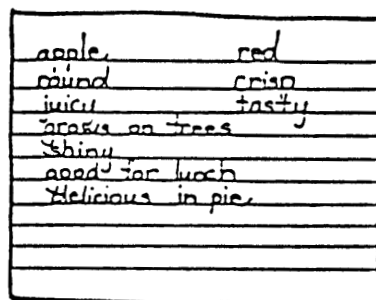 apple red
round crisp
juicy tasty
grows on trees
shiny
good for lunch
delicious in pie